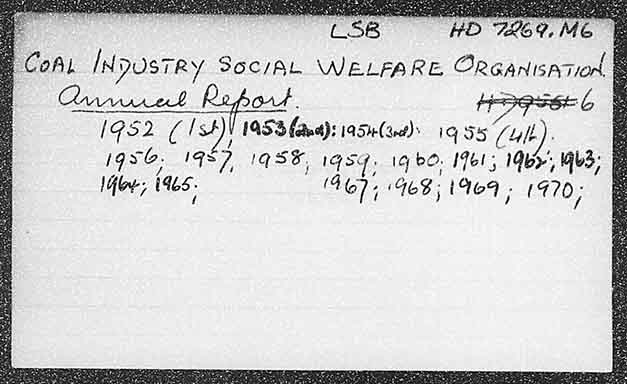 LSB HD 7269.M6
COAL INDUSTRY SOCIAL WELFARE ORGANISATION.
Annual Report. 6
1952 (1st); 1953 (2nd); 1954 (3rd); 1955 (4th).
1956; 1957, 1958, 1959; 1960; 1961; 1962; 1963;
1964; 1965; 1967; 1968; 1969; 1970;